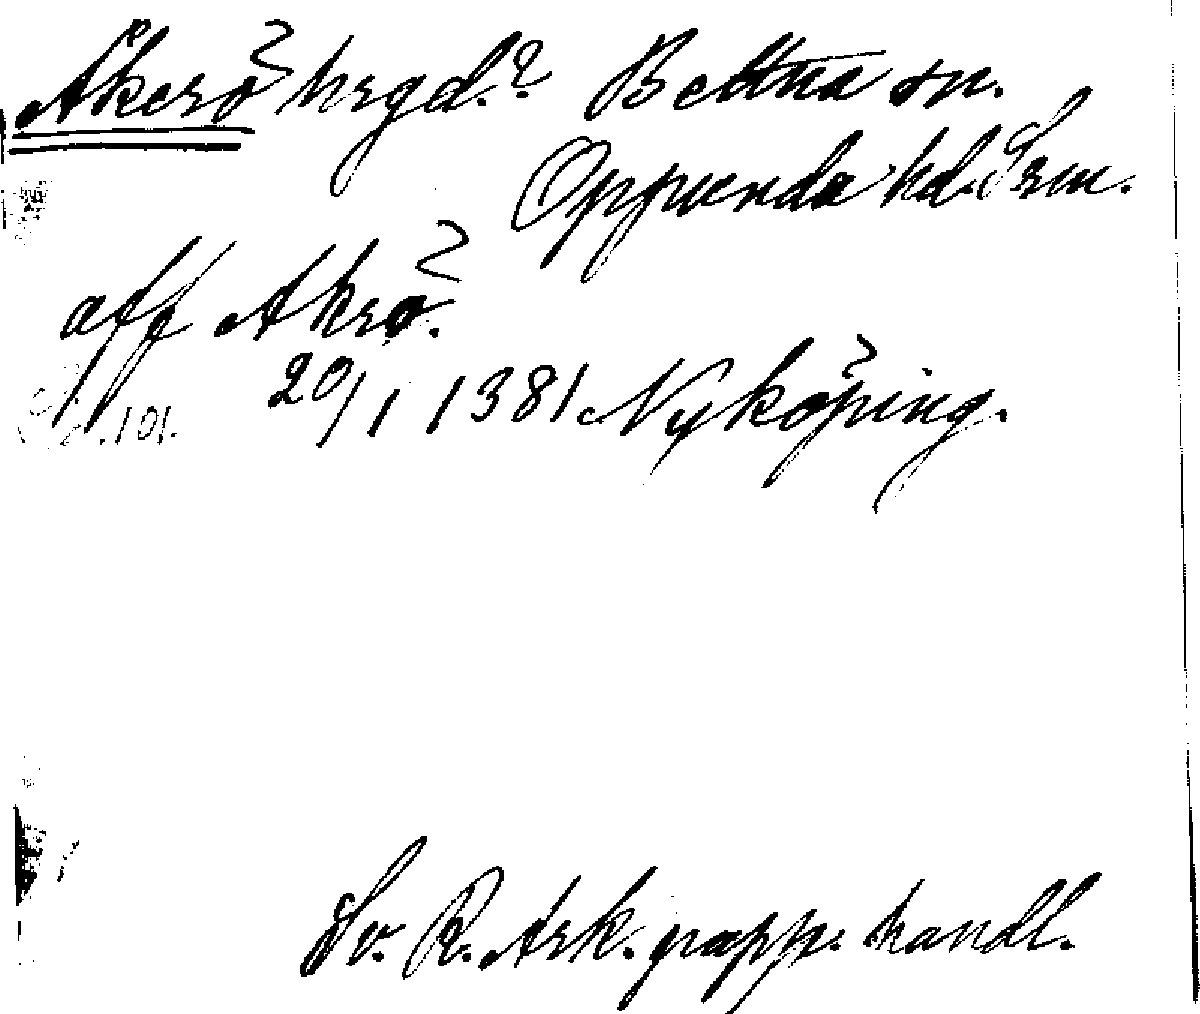 Åkerö hrgd.? Bettna sn.
Oppunda hd. Srm.
aff Akrö.
20/1 1381 Nyköping.
101.
Sv. R. Ark. papp. handl.